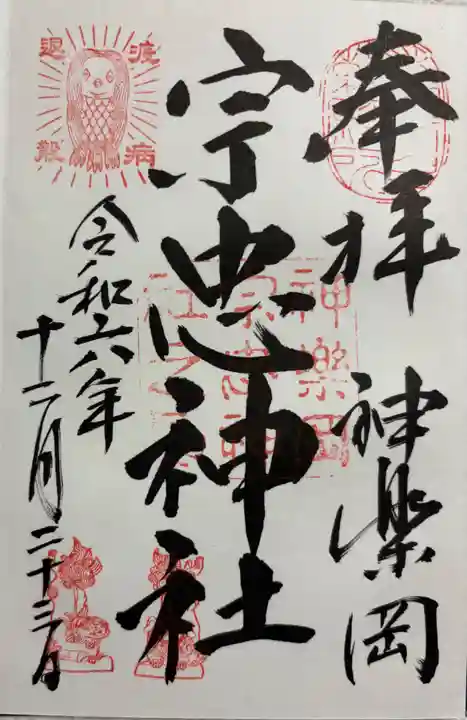 奉拝 神楽岡
宗忠神社
令和六年
十二月二十三日
疫病
退散
神樂岡
宗忠神
社之